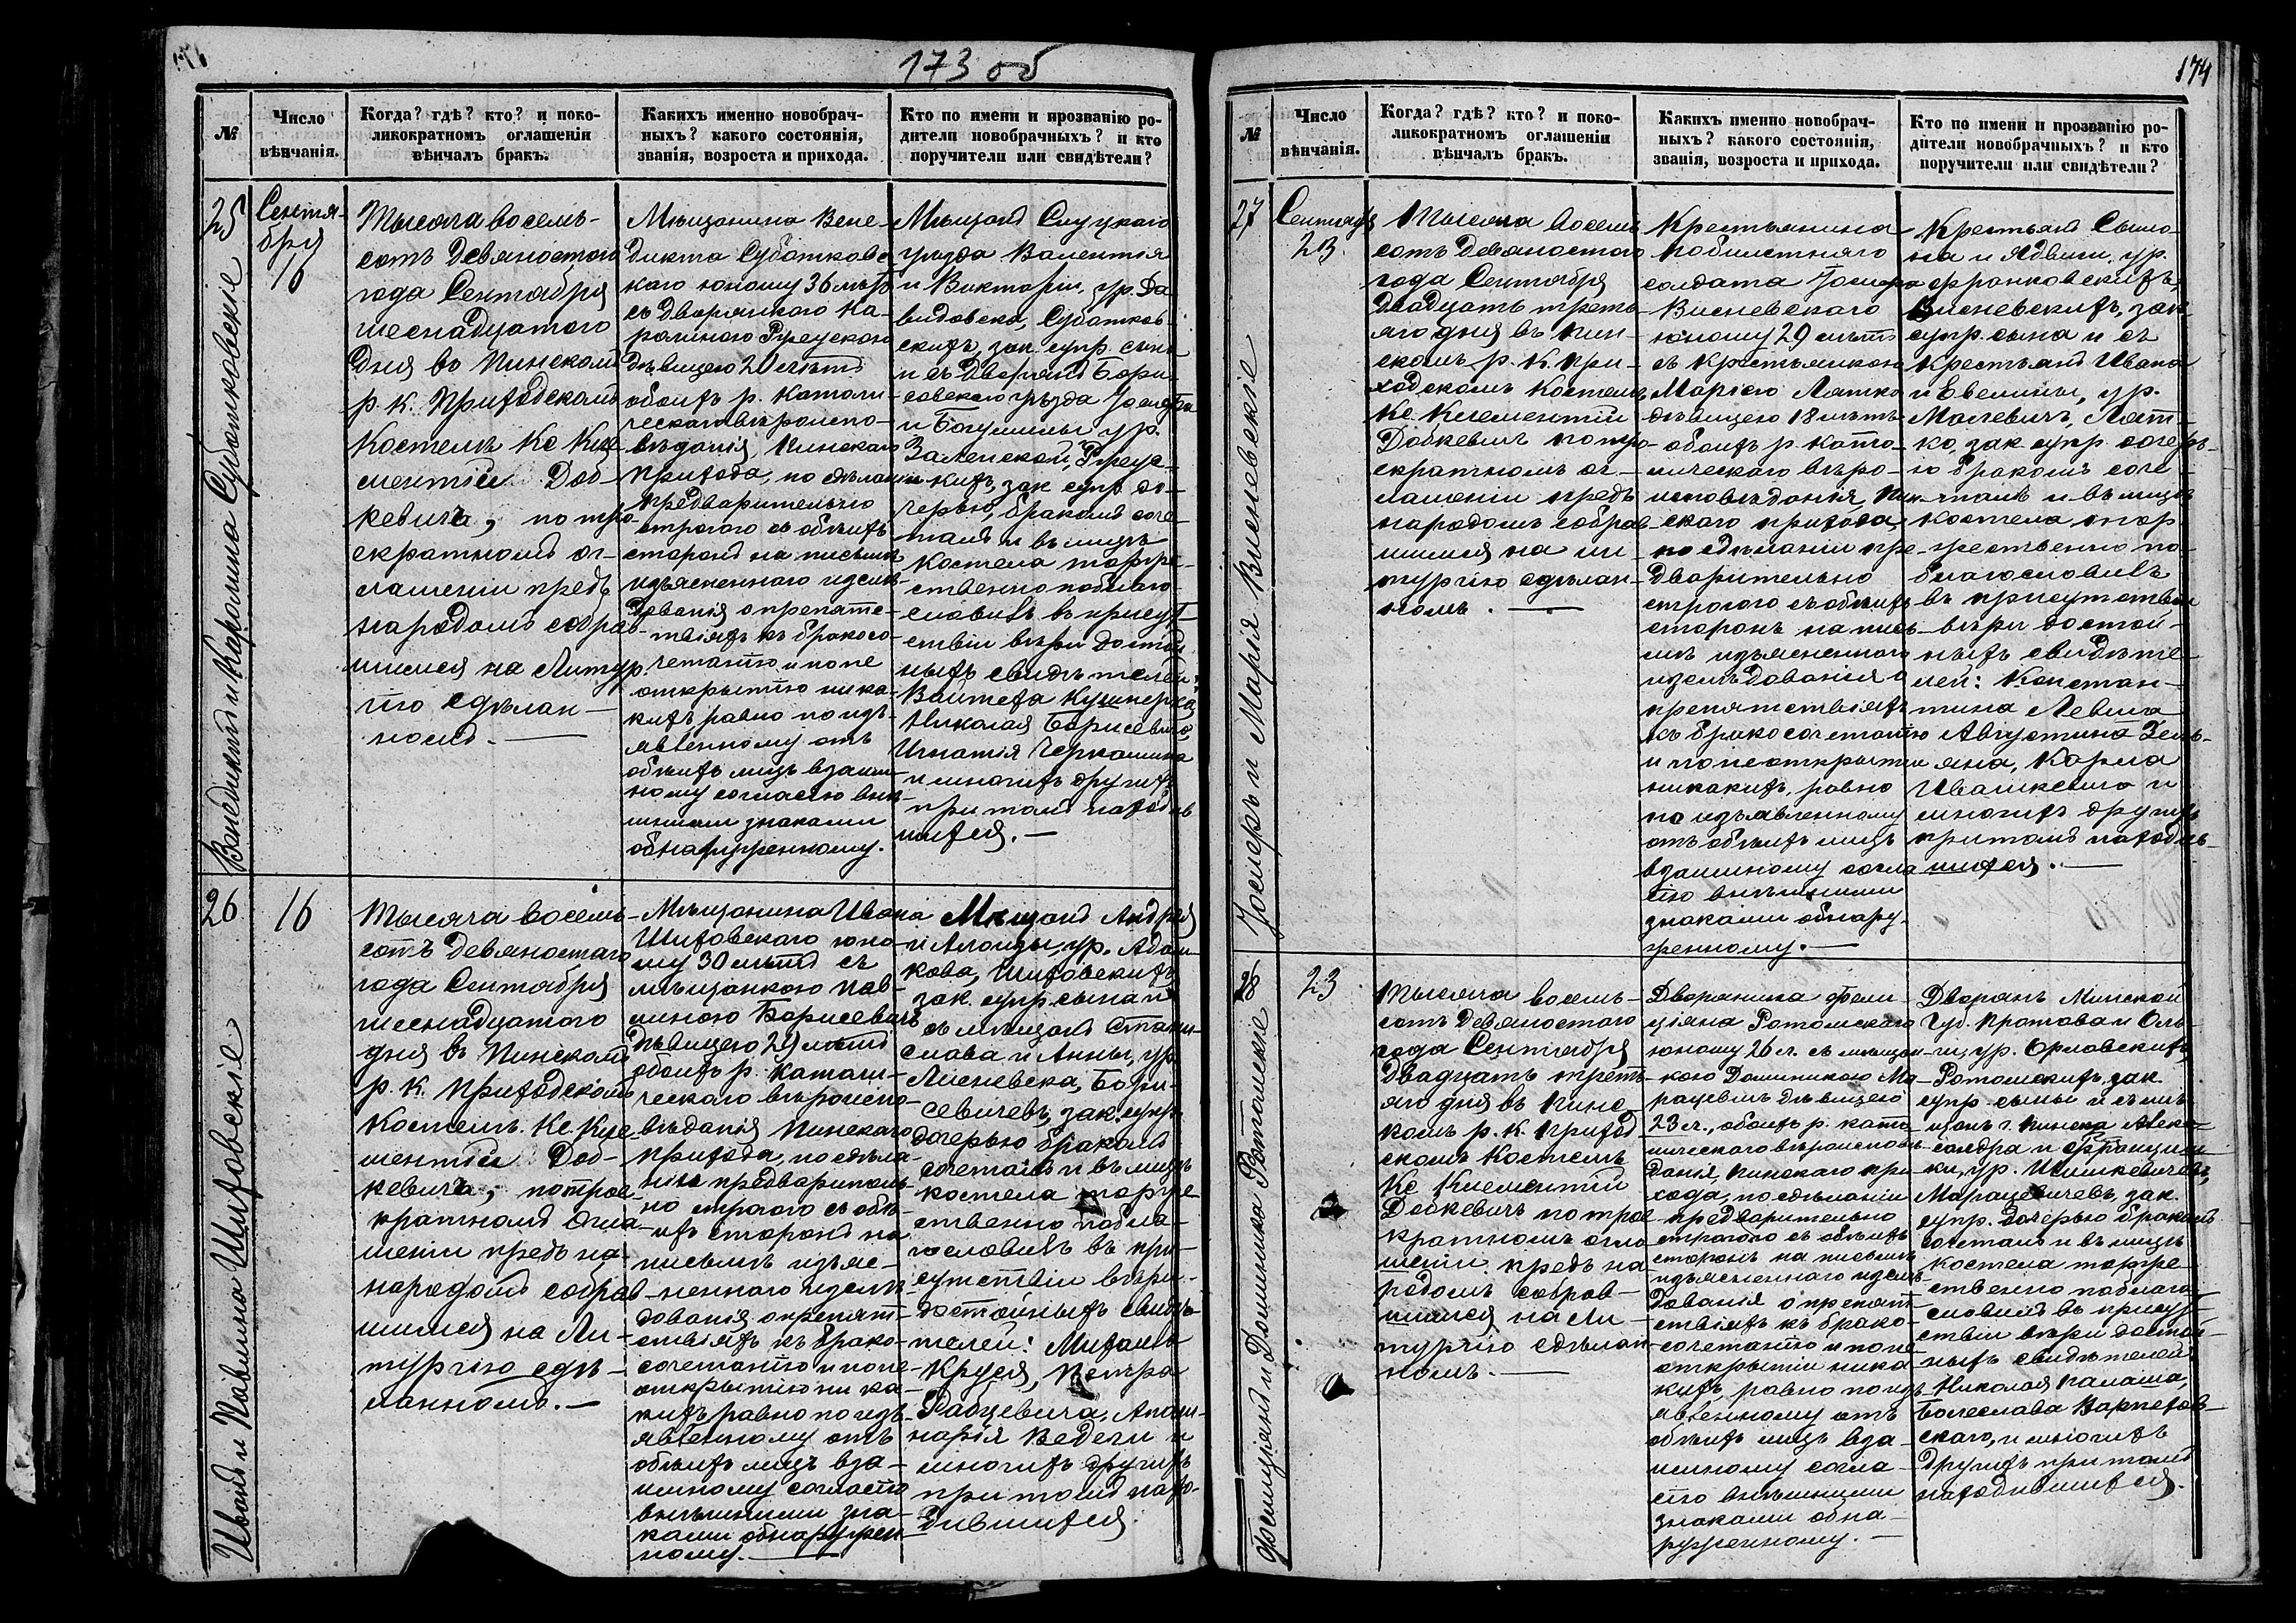 173 об
№
Число
вѣнчанія.
Когда? гдѣ? кто? и поко-
ликократномъ оглашеніи
вѣнчалъ бракъ.
Какихъ именно новобрач-
ныхъ? какого состоянія,
званія, возроста и прихода.
Кто по имени и прозванію ро-
дители новобрачныхъ? и кто
поручители или свидѣтели?
25
Венедиктъ и Каролина Суботковскіе
Сентя-
бря
16
Тысяча восемь-
сотъ девяностаго
года Сентября
шеснадцатого
дня въ Пинскомъ
р. к. приходскомъ
костелѣ Кс Кле-
ментій Доб-
кевичъ, по тро-
екратномъ ог-
лашеніи предъ
народомъ собрав-
шимся на Литур-
гію сдѣлан-
номъ. —
Мѣщанина Вене-
дикта Суботковс-
каго юношу 36 лѣтъ
съ дворянкою Ка-
ролиною
дѣвицею 20 лѣтъ
обоихъ р. Католи-
ческаго вѣроиспо-
вѣданія, Пинскаго
прихода, по сдѣланіи
предварительно
строгого съ обѣихъ
сторонъ на письмѣ
изъясненного изслѣ-
дованія о препятс-
твіяхъ къ бракосо-
четанію и по не
открытію ника-
кихъ равно по изъ-
явленному отъ
обѣихъ лицъ взаим-
ному согласію внѣ-
шними знаками
обнаруженному.
Мѣщанъ Слуцкаго
уѣзда Валентія
и Викторіи, ур. Да-
видовска, Суботков-
скихъ, зак. супр. сына
и съ Дворянъ Бори-
совскаго уѣзда Іосифа
и Богумилы ур.
Залѣнской,
зак. супр. до-
черью, бракомъ соче-
талъ и въ лицѣ
костела торже-
ственно поблаго-
словилъ въ присут-
ствіи вѣри достой-
ныхъ свидѣтелей:
Войтеха Кушнерка,
Николая Борисевича,
Игнатія Черкашина
и многихъ другихъ
при томъ находив-
шихся. —
26
Иванъ и Павлина Шиховскіе
16
Тысяча восемь-
сотъ девяностаго
года Сентября
шеснадцатого
дня въ Пинскомъ
р. к. приходскомъ
костелѣ Кс. Кле-
ментій Доб-
кевичъ, по трое-
кратномъ огла-
шеніи предъ на-
народомъ собрав-
шимся на Ли-
тургію сдѣ-
ланномъ. —
Мѣщанина Ивана
Шиховскаго юно-
шу 30 лѣтъ съ
мѣщанкою Пав-
линою Борисевичъ
дѣвицею 29 лѣтъ
обоихъ р. католи-
ческаго вѣроиспо-
вѣданія Пинскаго
прихода, по сдѣла-
ніи предваритель-
но строгого съ обѣ-
ихъ сторонъ на
письмѣ изъяс-
ненного изслѣ-
дованія о препят-
ствіяхъ къ брако-
сочетанію и по не
открытію ни ка-
кихъ равно по изъ-
явленному отъ
обѣихъ лицъ вза-
имному согласію
внѣшними зна-
ками обнаружен-
ному. —
Мѣщанъ Андрея
и Алоизы, ур. Адам-
кова, Шиховскихъ
зак. супр. сына и
съ мѣщанъ Стани-
слава и Анны, ур.
Лисневска, Бори-
севичевъ, зак. супр.
дочерью бракомъ
сочеталъ и въ лицѣ
костела торже-
ственно побла-
гословилъ въ при-
сутствіи вѣри-
достойныхъ свидѣ-
телей: Михаила
Круся, Петра
Рабцевича, Аполи-
нарія Ведечи и
многихъ другихъ
при томъ нахо-
дившихся.
174
№
Число
вѣнчанія.
Когда? гдѣ? кто? и поко-
ликократномъ оглашеніи
вѣнчалъ бракъ.
Какихъ именно новобрач-
ныхъ? какого состоянія,
званія, возроста и прихода.
Кто по имени и прозванію ро-
дители новобрачныхъ? и кто
поручители или свидѣтели?
27
Іосифъ и Марія Висневскіе
Сентября
23
Тысяча восемь
сотъ девяностаго
года Сентября
двадцать треть-
яго дня въ Пин-
скомъ р. К. при-
ходскомъ костелѣ
Кс. Клементій
Добкевичъ по тро-
екратномъ ог-
лашеніи предъ
народомъ собрав-
шимся на ли-
тургію сдѣлан-
номъ. —
Крестьянина
побилетняго
солдата Іосифа
Висневскаго
юношу 29 лѣтъ
съ крестьянкою
Маріею Лятко
дѣвицею 18 лѣтъ
обоихъ р. като-
лическаго вѣро-
исповѣданія, Пин-
скаго прихода,
по сдѣланіи пре-
дварительно
строгого съ обѣихъ
сторонъ на пись-
мѣ изъясненного
изслѣдованія о
препятствіяхъ
къ бракосочетанію
и по не открытіи
никакихъ, равно
по изъявленному
отъ обѣихъ лицъ
взаимному согла-
сію внѣшними
знаками обнару-
женному. —
Крестьянъ Сымо-
на и Ядвиги, ур.
Франковскихъ,
Висневскихъ, зак.
супр. сына и съ
крестьянъ Ивана
и Евелины, ур.
Малевичъ, Лят-
ко, зак. супр. дочерь-
ю бракомъ соче-
талъ и въ лицѣ
костела тор-
жественно по-
благословилъ
въ присутствіи
вѣри достой-
ныхъ свидѣте-
лей: Констан-
тина Левша
Августина Зель-
яна, Карла
Ивашкевича и
многихъ другихъ
притомъ находив-
шихся. —
28
Фелиціянъ и Доминика Ротомскіе
23
Тысяча восемь-
сотъ девяностаго
года Сентября
двадцать треть-
яго дня въ Пинс-
комъ р. К. приход-
скомъ костелѣ
Кс Клементій
Добкевичъ по трое-
кратномъ огла-
шеніи предъ на-
родомъ собрав-
шимся на Ли-
тургію сдѣлан-
номъ. —
Дворянина Фели-
ціяна Ротомскаго
юношу 26 л. съ мѣщан-
кою Доминикою Ма-
рацевичъ дѣвицею
23 л., обоихъ р. като-
лическаго вѣроисповѣ-
данія, Пинскаго при-
хода, по сдѣланіи
предварительно
строгого съ обѣихъ
сторонъ на письмѣ
изъясненного изслѣ-
дованія о препят-
ствіяхъ къ брако-
сочетанію и по не
открытіи ника-
кихъ, равно по изъ-
явленному отъ
обѣихъ лицъ вза-
имному согла-
сію внѣшними
знаками обна-
руженному. —
Дворянъ Минской
Губ. Протова и Оль-
ги, ур. Орловскихъ
Ротомскихъ, зак.
супр. сына и съ мѣ-
щанъ г. Пинска Алек-
сандра и Францис-
ки, ур. Шишкевичевъ,
Марацевичевъ, зак.
супр. дочерью бракомъ
сочеталъ и въ лицѣ
костела торже-
ственно поблаго-
словилъ въ присут-
ствіи вѣри достой-
ныхъ свидѣтелей
Николая Палаша,
Болеслава Карпехов-
скаго, и многихъ
другихъ при томъ
находившихся.